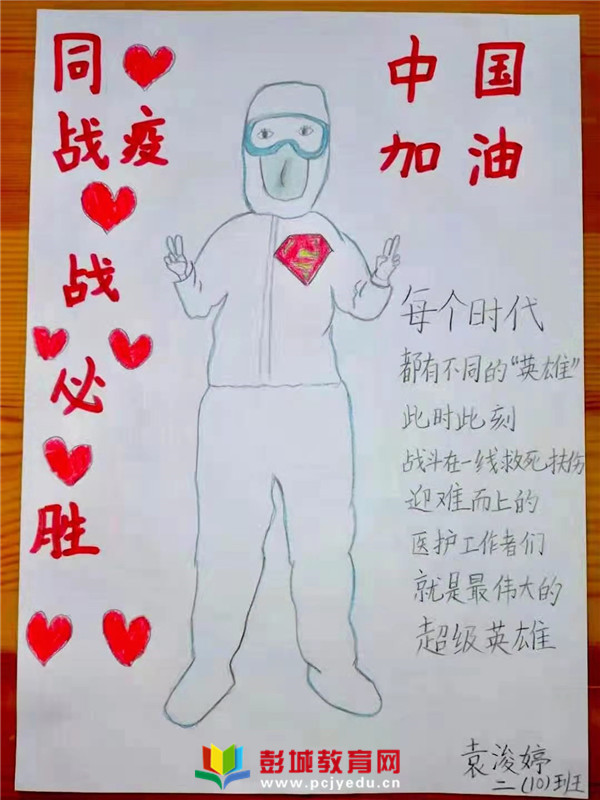 同
战疫
战
必
胜
中国
加油
每个时代
都有不同的“英雄”
此时此刻
战斗在一线救死扶伤
迎难而上的
医护工作者们
就是最伟大的
超级英雄
袁浚婷
二(10)班
彭城教育网
www.pcjyedu.cn